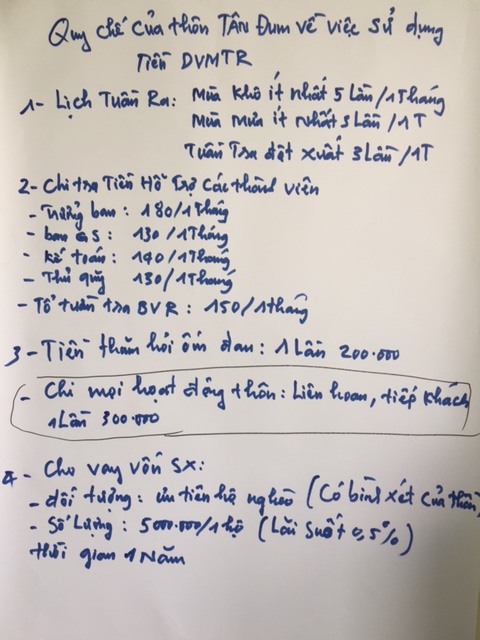 Quy chế của thôn TÂN Đum về việc sử dụng
Tiền DVMTR
1- Lịch Tuần Ra: Mùa khô ít nhất 5 lần/1Tháng
Mùa mưa ít nhất 3 lần/1T
Tuần Tra đột xuất 3 lần/1T
2- Chi trả Tiền Hỗ Trợ Các thành viên
- Trưởng ban: 180/1Tháng
- ban GS: 130/1Tháng
- Kế toán: 140/1Tháng
- Thủ quỹ 130/1Tháng
- Tổ tuần tra BVR: 150/1tháng
3- Tiền thăm hỏi ốm đau: 1 Lần 200.000
- Chi mọi hoạt động thôn: Liên hoan, tiếp khách
1Lần 300.000
4- Cho vay vốn SX:
- đối tượng: ưu tiên hộ nghèo (Có bình xét của thôn)
- Số lượng: 5000.000/1hộ (Lãi suất 0,5%)
thời gian 1 Năm